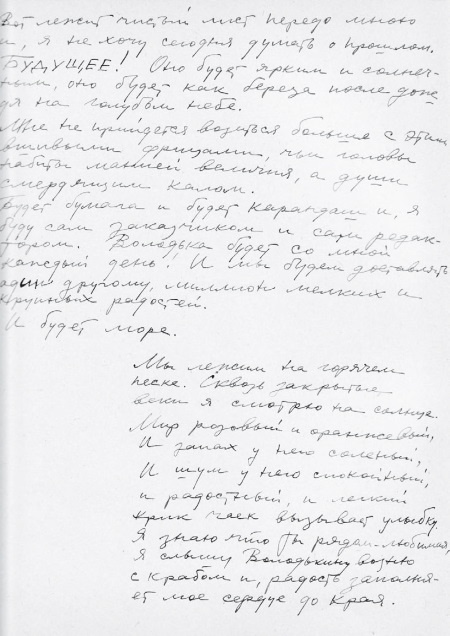 Вот лежит чистый лист передо мною
и, я не хочу сегодня думать о прошлом.
БУДУЩЕЕ! Оно будет ярким и солнеч-
ным, оно будет как береза после дож-
дя на голубом небе.
Мне не прийдется возиться больше с этими
вшивыми фрицами, чьи головы
набиты манией величия, а души
смердящим калом.
Будет бумага и будет карандаш и, я
буду сам заказчиком и сам редак-
тором. Володька будет со мной
каждый день! И мы будем доставлять
один другому, миллион мелких и
крупных радостей.
И будет море.
Мы лежим на горячем
песке. Сквозь закрытые
веки я смотрю на солнце.
Мир розовый и оранжевый,
И запах у него соленый,
И шум у него спокойный,
и радостный, и легкий
крик чаек вызывает улыбку.
Я знаю что ты рядом-любимая,
Я слышу Володькину возню
с крабом и, радость заполня-
ет мое сердце до края.